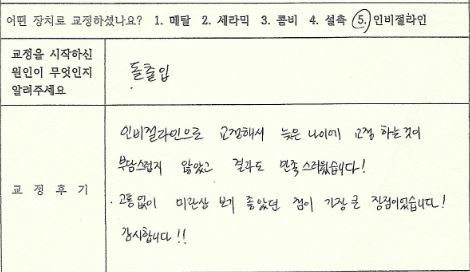 어떤 장치로 교정하셨나요? 1. 메탈 2. 세라믹 3. 콤비 4. 설측 5. 인비절라인
교정을 시작하신
원인이 무엇인지
알려주세요
돌출입
교 정 후 기
인비절라인으로 교정해서 늦은 나이에 교정 하는것이
부담스럽지 않았고 결과도 만족스러웠습니다!
고통없이 미관상 보기 좋았던 점이 가장 큰 장점이었습니다!
감사합니다!!